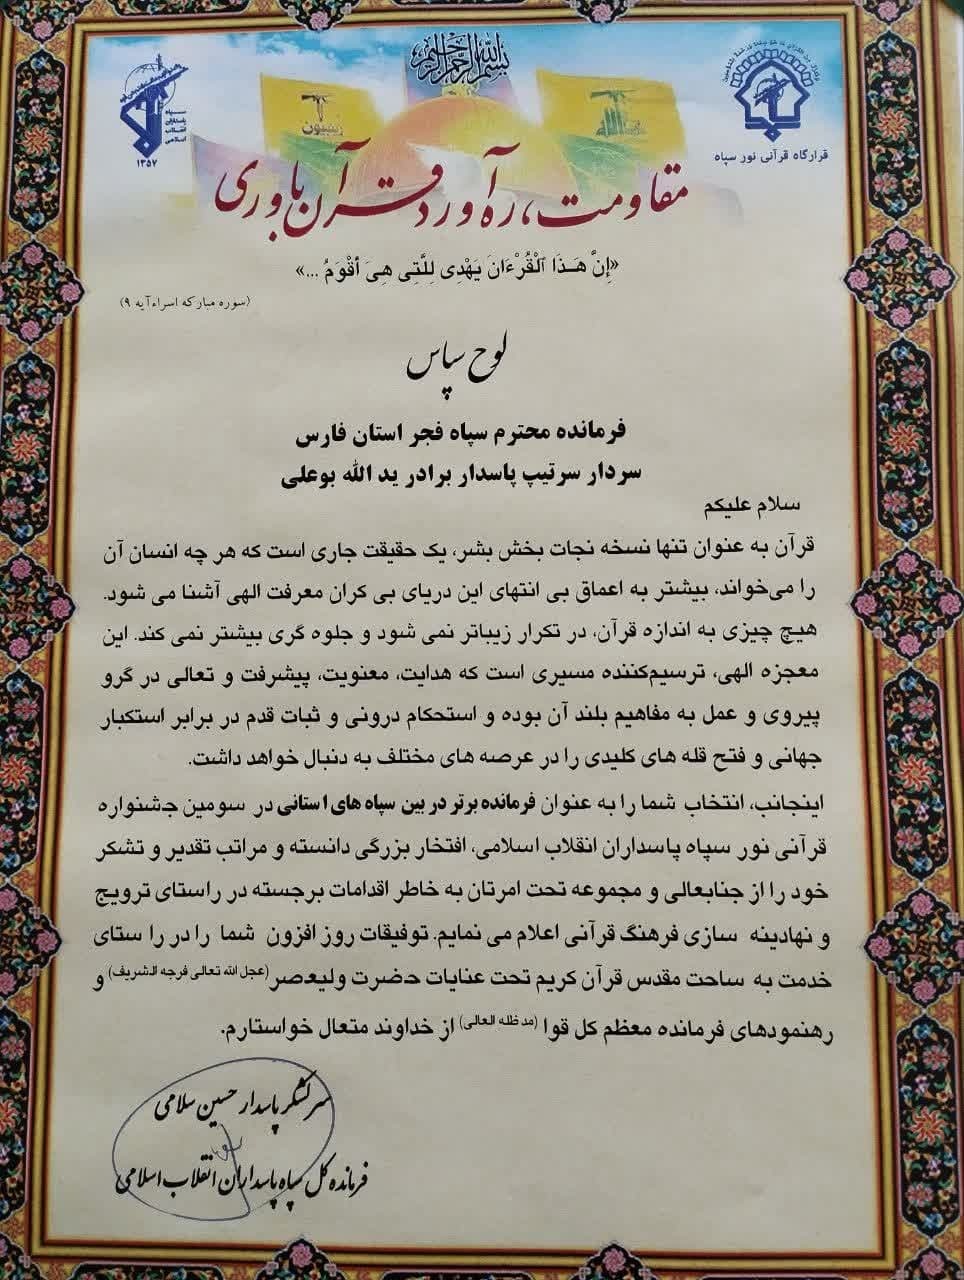 بسم الله الرحمن الرحیم
سپاه
پاسداران
انقلاب
اسلامی
۱۳۵۷
قرارگاه قرآنی نور سپاه
زینبیون
مقاومت، ره آورد قرآن باوری
«إِنَّ هَـذَا ٱلْقُرْءَانَ يَهْدِى لِلَّتِى هِىَ أَقْوَمُ ...»
(سوره مبارکه اسراء آیه ۹)
لوح سپاس
فرمانده محترم سپاه فجر استان فارس
سردار سرتیپ پاسدار برادر ید الله بوعلی
سلام علیکم
قرآن به عنوان تنها نسخه نجات بخش بشر، یک حقیقت جاری است که هر چه انسان آن
را می‌خواند، بیشتر به اعماق بی انتهای این دریای بی کران معرفت الهی آشنا می شود.
هیچ چیزی به اندازه قرآن، در تکرار زیباتر نمی شود و جلوه گری بیشتر نمی کند. این
معجزه الهی، ترسیم‌کننده مسیری است که هدایت، معنویت، پیشرفت و تعالی در گرو
پیروی و عمل به مفاهیم بلند آن بوده و استحکام درونی و ثبات قدم در برابر استکبار
جهانی و فتح قله های کلیدی را در عرصه های مختلف به دنبال خواهد داشت.
اینجانب، انتخاب شما را به عنوان فرمانده برتر در بین سپاه های استانی در سومین جشنواره
قرآنی نور سپاه پاسداران انقلاب اسلامی، افتخار بزرگی دانسته و مراتب تقدیر و تشکر
خود را از جنابعالی و مجموعه تحت امرتان به خاطر اقدامات برجسته در راستای ترویج
و نهادینه سازی فرهنگ قرآنی اعلام می نمایم. توفیقات روز افزون شما را در را ستای
خدمت به ساحت مقدس قرآن کریم تحت عنایات حضرت ولیعصر (عجل الله تعالی فرجه الشریف) و
رهنمودهای فرمانده معظم کل قوا (مد ظله العالی) از خداوند متعال خواستارم.
سرلشکر پاسدار حسین سلامی
فرمانده کل سپاه پاسداران انقلاب اسلامی